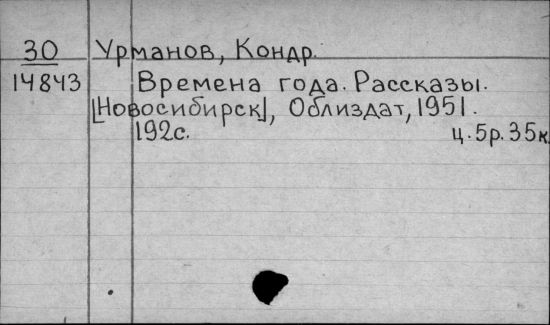 30 Урманов, Кондр.
14843 Времена года. Рассказы.
[Новосибирск], Облиздат, 1951.
192с. ц. 5р. 35к